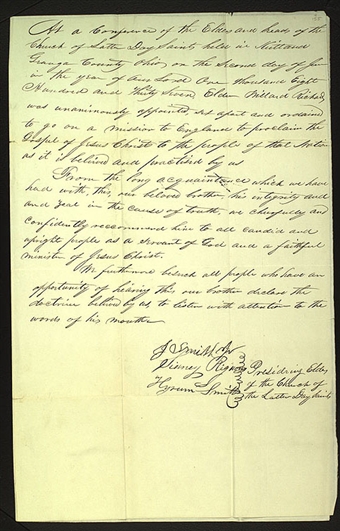 At a Conference of the Elders and heads of the
Church of Latter Day Saints held in Kirtland
Geauga County Ohio, on the Second day of
in the year of our Lord One thousand Eight
Hundred and Thirty Seven Elder Willard Richards
was unanimously appointed, set apart and ordained
to go on a mission to England to proclaim the
Gospel of Jesus Christ to the people of that Nation
as it is believed and practised by us
From the long acquaintance which we have
had with, this, our beloved brother, his integrity and
and zeal in the causes of truth, we chearfully and
confidently reccommend him to all candid and
upright people as a servant of God and a faithful
minister of Jesus Christ.
We furthermore beseech all people who have an
opportunity of hearing this our brother declare the
doctrine believed by us to listen with attention to the
words of his mouth
J Smith Jr
Sidney Rigdon Presiding Elders
Hyrum Smith of the Church of
the Latter Day Saints